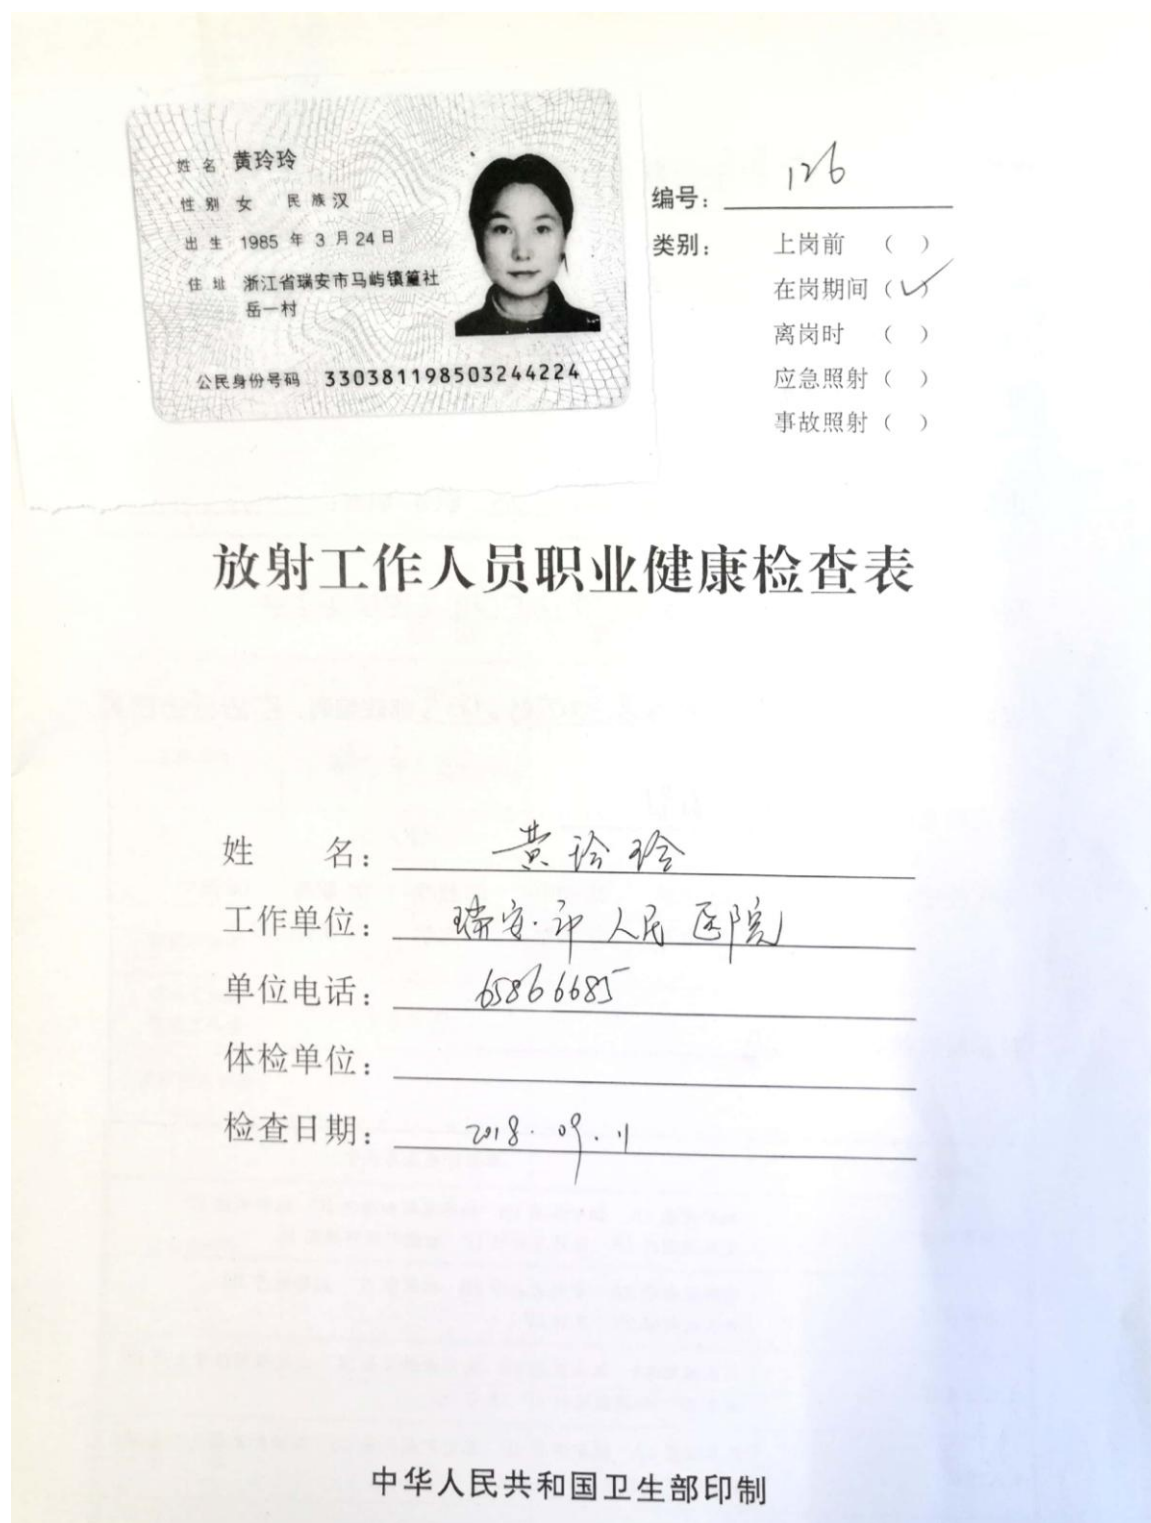 姓名 黄玲玲
性别 女 民族 汉
出生 1985年3月24日
住址 浙江省瑞安市马屿镇篁社
岳一村
公民身份号码 330381198503244224
编号: 126
类别: 上岗前 ( )
在岗期间 (✓)
离岗时 ( )
应急照射 ( )
事故照射 ( )
放射工作人员职业健康检查表
姓 名: 黄玲玲
工作单位: 瑞安市人民医院
单位电话: 65866685
体检单位:
检查日期: 2018.09.11
中华人民共和国卫生部印制